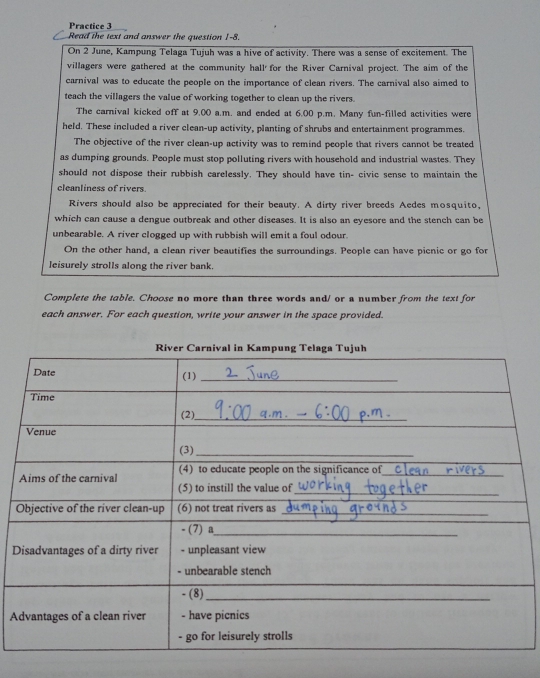 Practice 3
Read the text and answer the question 1-8.
On 2 June, Kampung Telaga Tujuh was a hive of activity. There was a sense of excitement. The
villagers were gathered at the community hall' for the River Carnival project. The aim of the
carnival was to educate the people on the importance of clean rivers. The carnival also aimed to
teach the villagers the value of working together to clean up the rivers.
The carnival kicked off at 9.00 a.m. and ended at 6.00 p.m. Many fun-filled activities were
held. These included a river clean-up activity, planting of shrubs and entertainment programmes.
The objective of the river clean-up activity was to remind people that rivers cannot be treated
as dumping grounds. People must stop polluting rivers with household and industrial wastes. They
should not dispose their rubbish carelessly. They should have tin- civic sense to maintain the
cleanliness of rivers.
Rivers should also be appreciated for their beauty. A dirty river breeds Aedes mosquito,
which can cause a dengue outbreak and other diseases. It is also an eyesore and the stench can be
unbearable. A river clogged up with rubbish will emit a foul odour.
On the other hand, a clean river beautifies the surroundings. People can have picnic or go for
leisurely strolls along the river bank.
Complete the table. Choose no more than three words and/ or a number from the text for
each answer. For each question, write your answer in the space provided.
River Carnival in Kampung Telaga Tujuh
Date
(1) 2 June
Time
(2) 9:00 a.m. - 6:00 p.m.
Venue
(3)
Aims of the carnival
(4) to educate people on the significance of clean rivers
(5) to instill the value of working together
Objective of the river clean-up
(6) not treat rivers as dumping grounds
Disadvantages of a dirty river
- (7) a
- unpleasant view
- unbearable stench
Advantages of a clean river
- (8)
- have picnics
- go for leisurely strolls